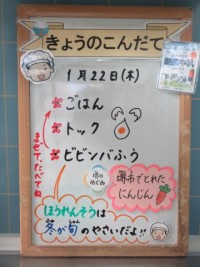 きょうのこんだて
1月22日(木)
ごはん
トック
ビビンバふう
まぜて、たべてね
堺のめぐみ
堺市でとれた
にんじん
ほうれんそうは
冬が旬のやさいだよ!!